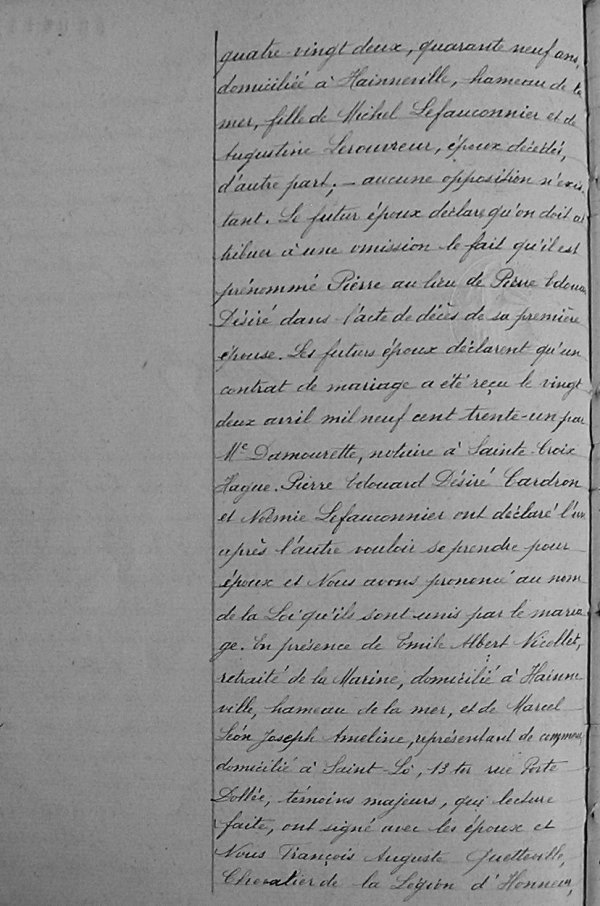 quatre-vingt deux, quarante neuf ans,
domiciliée à Hainneville, hameau de la
mer, fille de Michel Lefauconnier et de
Augustine Lerouvreur, époux décédés,
d'autre part; — aucune opposition n'exis
tant. Le futur époux déclare qu'on doit at
tribuer à une omission le fait qu'il est
prénommé Pierre au lieu de Pierre Edouard
Désiré dans l'acte de décès de sa première
épouse. Les futurs époux déclarent qu'un
contrat de mariage a été reçu le vingt
deux avril mil neuf cent trente-un par
Me Damourette, notaire à Sainte-Croix
Hague. Pierre Edouard Désiré Cardron
et Noémie Lefauconnier ont déclaré l'un
après l'autre vouloir se prendre pour
époux et Nous avons prononcé au nom
de la Loi qu'ils sont unis par le maria
ge. En présence de Emile Albert Nicollet,
retraité de la Marine, domicilié à Hainne
ville, hameau de la mer, et de Marcel
Léon Joseph Ameline, représentant de commerce
domicilié à Saint-Lô, 13 ter rue Porte
Dollée, témoins majeurs, qui lecture
faite, ont signé avec les époux et
Nous François Auguste Quetteville,
Chevalier de la Légion d'Honneur,